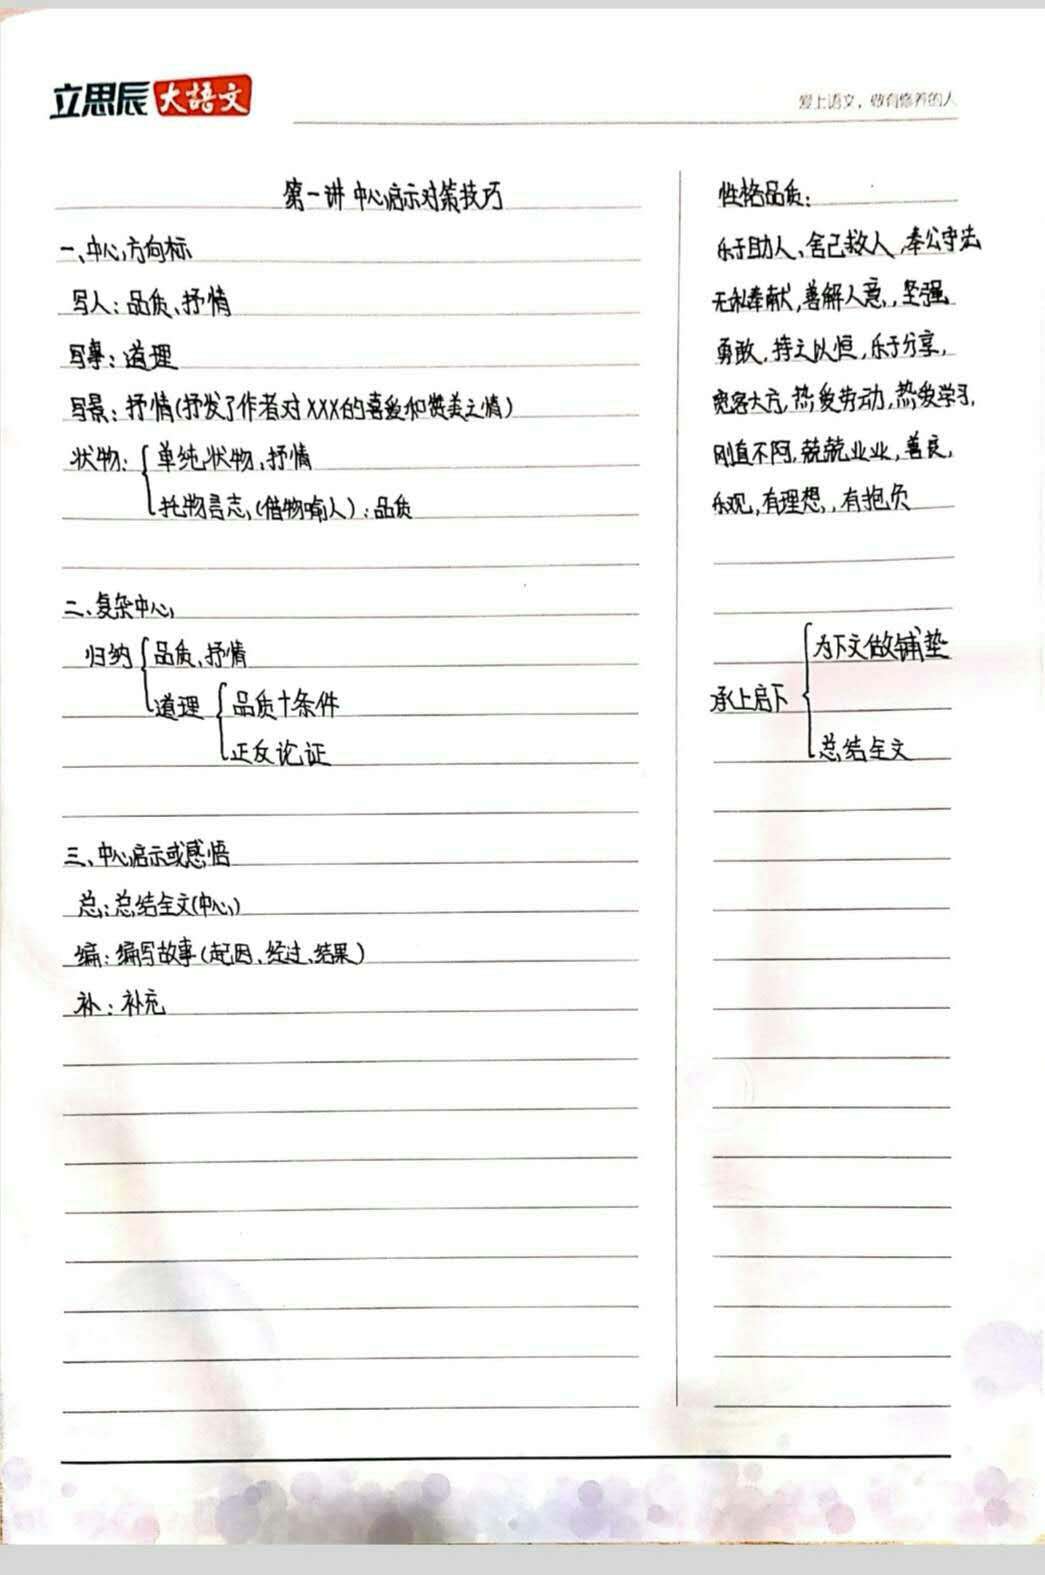 立思辰大語文
爱上语文，做有修养的人
第一讲 中心启示对策技巧
一、中心方向标
写人：品质、抒情
写事：道理
写景：抒情(抒发了作者对XXX的喜爱和赞美之情)
状物：{单纯状物、抒情
托物言志、(借物喻人)：品质
二、复杂中心
归纳{品质、抒情
道理{品质+条件
正反论证
三、中心启示或感悟
总：总结全文(中心)
编：编写故事(起因、经过、结果)
补：补充
性格品质：
乐于助人、舍己救人、奉公守法
无私奉献，善解人意，坚强
勇敢，持之以恒，乐于分享，
宽容大方，热爱劳动，热爱学习，
刚直不阿，兢兢业业，善良，
乐观，有理想，有抱负
承上启下{为下文做铺垫
总结全文